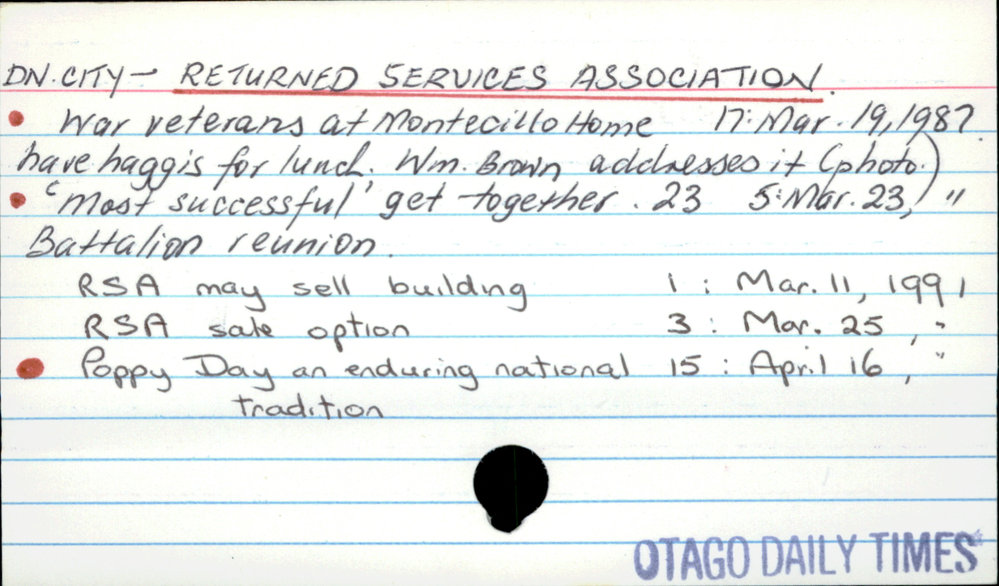 DN. CITY - RETURNED SERVICES ASSOCIATION.
• War veterans at Montecillo Home 17: Mar. 19, 1987.
have haggis for lunch. Wm. Brown addresses it (photo.)
• 'Most successful' get together. 23 5: Mar. 23, "
Battalion reunion.
RSA may sell building 1 : Mar. 11, 1991
RSA sale option 3 : Mar. 25, "
• Poppy Day an enduring national 15 : April 16, "
tradition
OTAGO DAILY TIMES